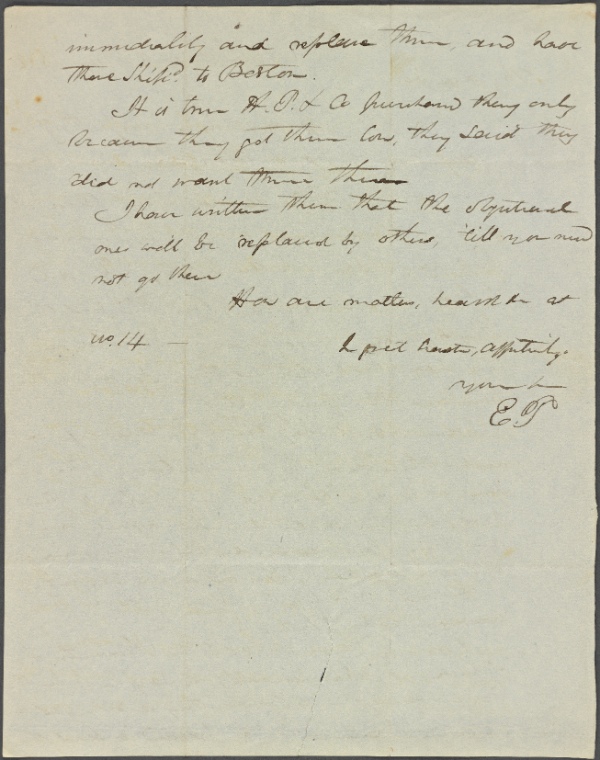 immediately and replace them, and have
these Ship'd to Boston.
It is true H. P. & Co purchased they only
because they got them low, they said they
did not want them
I have written them that the
ones will be replaced by others, 'till you need
not go there
How are matters, health &c at
no. 14 —
In great haste, affectily.
your
EP